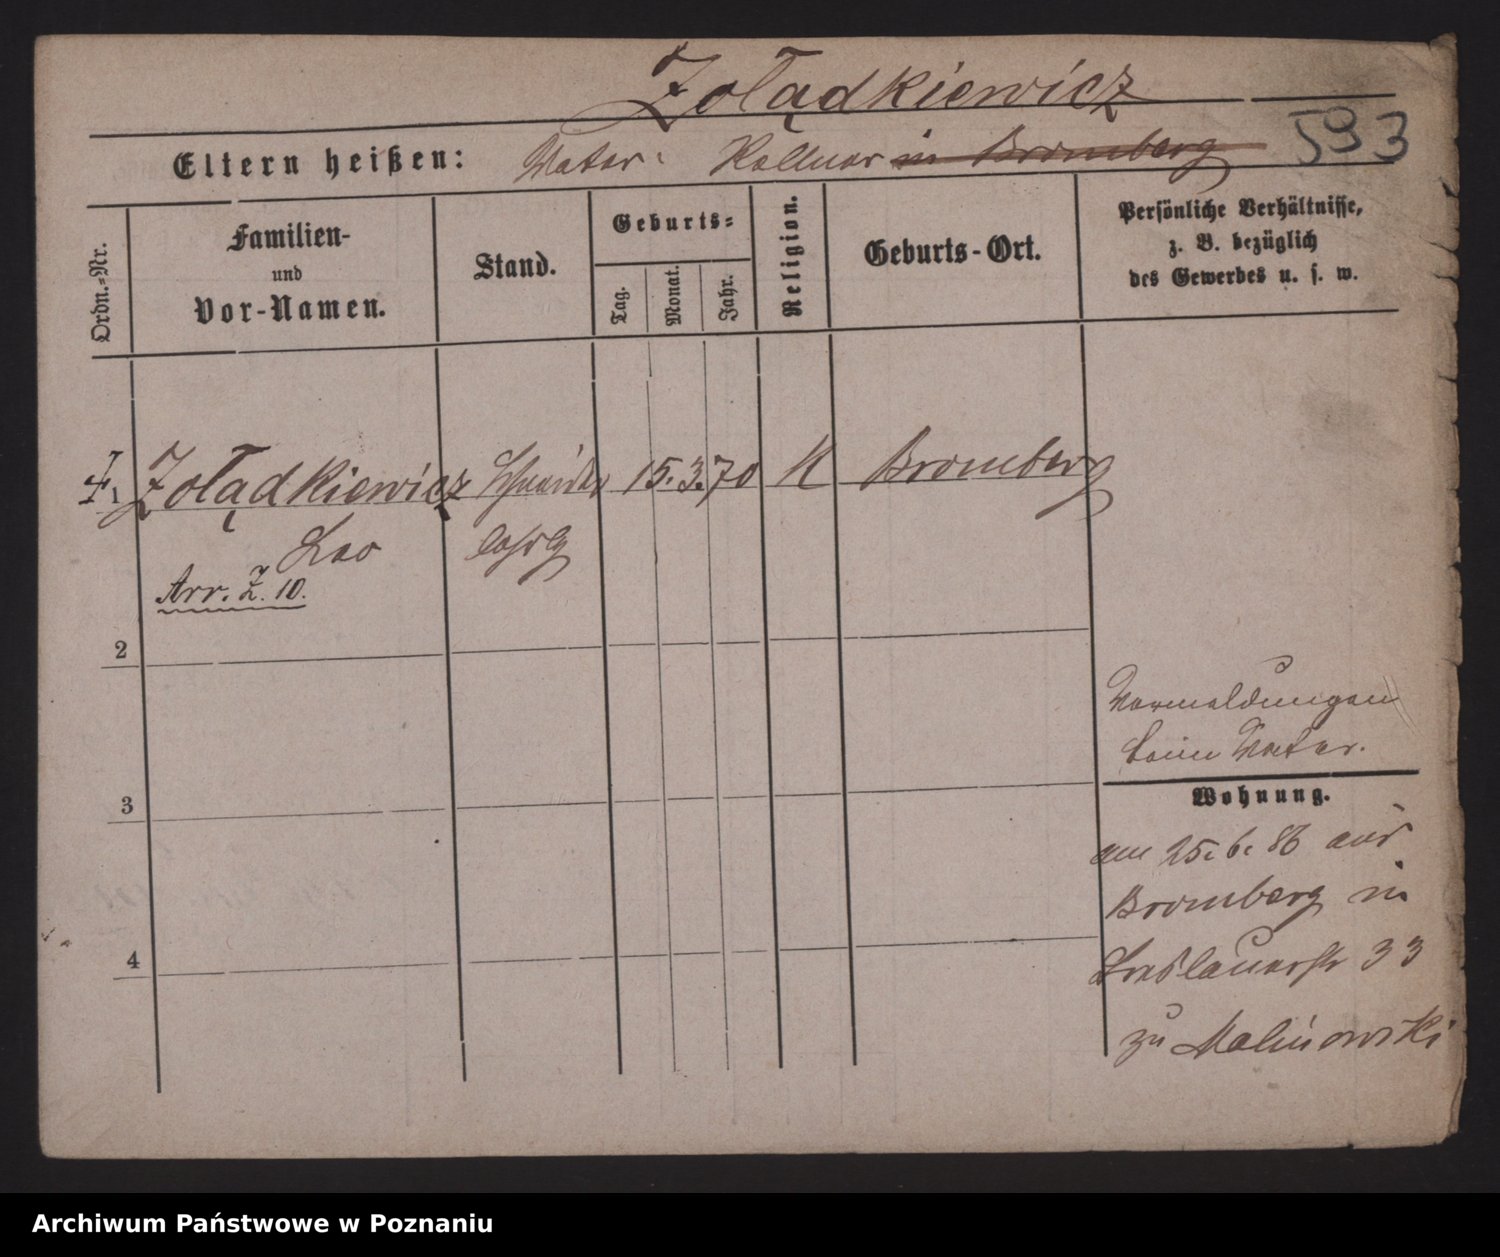 Żołądkiewicz
593
Eltern heißen: Vater: Kellner in Bromberg
Ordn.-Nr.
Familien-
und
Vor-Namen.
Stand.
Geburts-
Tag.
Monat.
Jahr.
Religion.
Geburts-Ort.
Persönliche Verhältnisse,
z. B. bezüglich
des Gewerbes u. s. w.
1. Żołądkiewicz Schneider 15. 3. 70 K Bromberg
Leo lehrlg
Arr. Z. 10.
2
Vormeldungen
beim Vater.
3
4
Wohnung.
am 25. 6. 86 aus
Bromberg in
Breslauerstr 33
zu Malinowski
Archiwum Państwowe w Poznaniu